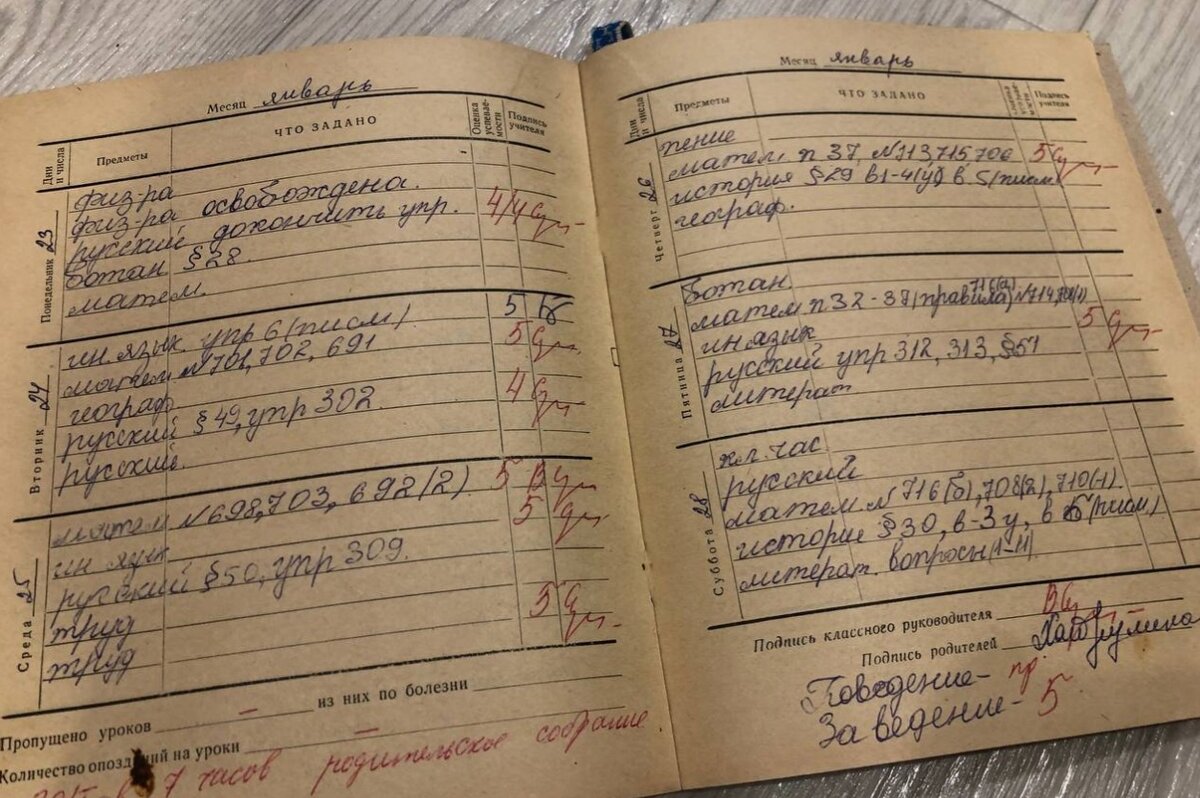 Месяц январь
Дни и числа Предметы ЧТО ЗАДАНО Оценка успеваемости Подпись учителя
Понедельник 23
физ-ра
физ-ра освобождена.
русский докончить упр. 4/4
ботан §28.
матем.
Вторник 24
ин. язык. упр 6 (писм) 5
матем №701, 702, 691 5
географ.
русский §49, упр 302. 4
русский.
Среда 25
матем №698, 703, 692 (2) 5
ин язык 5
русский §50, упр 309.
труд 5
труд
Пропущено уроков – из них по болезни
Количество опозданий на уроки –
в 7 часов родительское собрание
Месяц январь
Дни и числа Предметы ЧТО ЗАДАНО Подпись учителя
Четверг 26
пение
матем. п 37, №713, 715, 706 5
история §29 в 1-4(у) в. 5 (писм.
географ.
Пятница 27
ботан.
716(а)
матем п 32-37 (правила) №714,
ин язык 5
русский упр 312, 313, §51
литерат
Суббота 28
кл. час
русский
матем. №716(б), 708(2), 710(1).
история §30, в-3у, в 6 (писм)
литерат. вопросы (1-11)
Подпись классного руководителя
Подпись родителей
Поведение- пр.
За ведение- 5